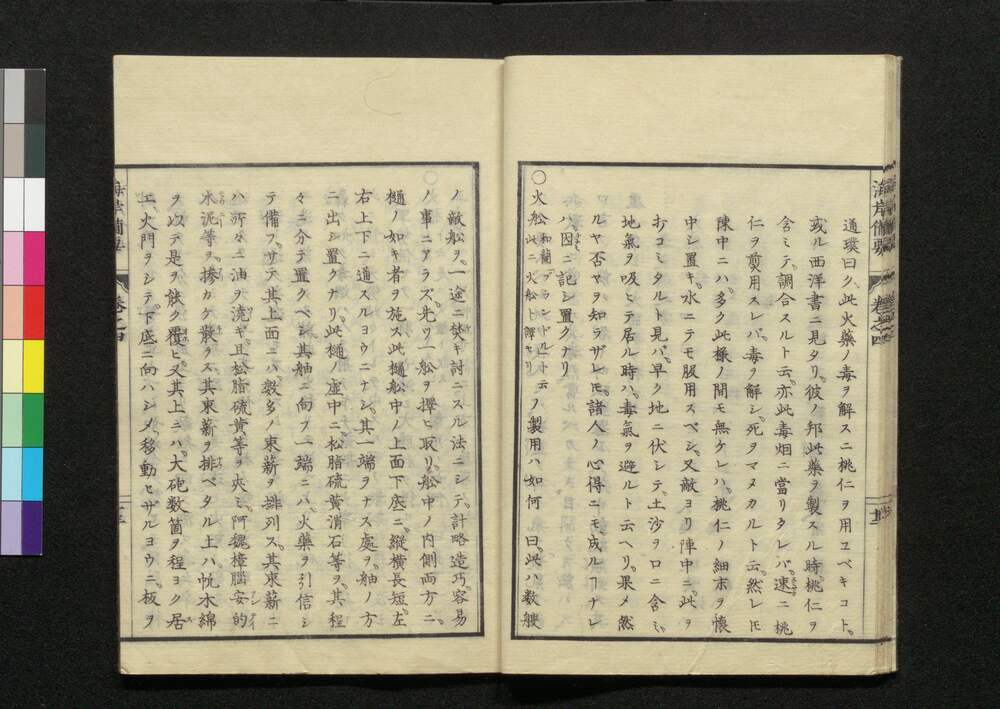 海岸備要
卷之四
通璞曰ク、此火藥ノ毒ヲ解スニ桃仁ヲ用ユベキコト、
或ル西洋書ニ見タリ。彼ノ邦此藥ヲ製スル時、桃仁ヲ
含ミテ、調合スルト云。亦此毒烟ニ當リタレバ、速ニ桃
仁ヲ煎用スレバ、毒ヲ解シ、死ヲマヌカルト云。然レ𪜈
陳中ニハ、多ク此様ノ間モ無ケレハ、桃仁ノ細末ヲ懐
中シ置キ、水ニテモ服用スベシ。又敵ヨリ陣中ニ、此ヲ
打コミタルト見バ、早ク地ニ伏シテ、土沙ヲ口ニ含ミ、
地氣ヲ吸ヒテ居ル時ハ、毒氣ヲ避ルト云ヘリ。果メ然
ルヤ否ヤヲ知ラザレ𪜈、諸人ノ心得ニモ、成ルヿナレ
ハ、因ニ記シ置クナリ
○火舩 和蘭ブランドルート云 此ニ火舩ト譯セリ ノ製用ハ如何 曰、此ハ数艘
ノ敵舩ヲ、一途ニ焚キ討ニスル法ニシテ、計略造巧、容易
ノ事ニアラズ。先ツ一舩ヲ擇ヒ取リ、舩中ノ内側両方ニ、
樋ノ如キ者ヲ施ス。此樋舩中ノ上面下底ニ、縦横長短、左
右上下ニ通スルヨウニナシ、其一端ヲナス處ヲ、舳ノ方
ニ出シ置クナリ。此樋ノ虚中ニ、松脂硫黄消石等ヲ、其程
々ニ分テ置クベシ。其舳ニ向フ一端ニハ、火藥ヲ引信シ
テ備フ。サテ其上面ニハ、数多ノ束薪ヲ排列ス。其束薪ニ
ハ所々ニ油ヲ澆ギ、且松脂硫黄等ヲ夾ミ、阿魏樟腦安的
末泥等ヲ、摻カケ散ラス。其束薪ヲ排ベタル上ハ、帆木綿
ヲ以テ是ヲ能ク覆ヒ、又其上ニハ、大砲数箇ヲ程ヨク居
エ、火門ヲシテ、下底ニ向ハシメ、移動セザルヨウニ、板ヲ
海岸備要
卷之四